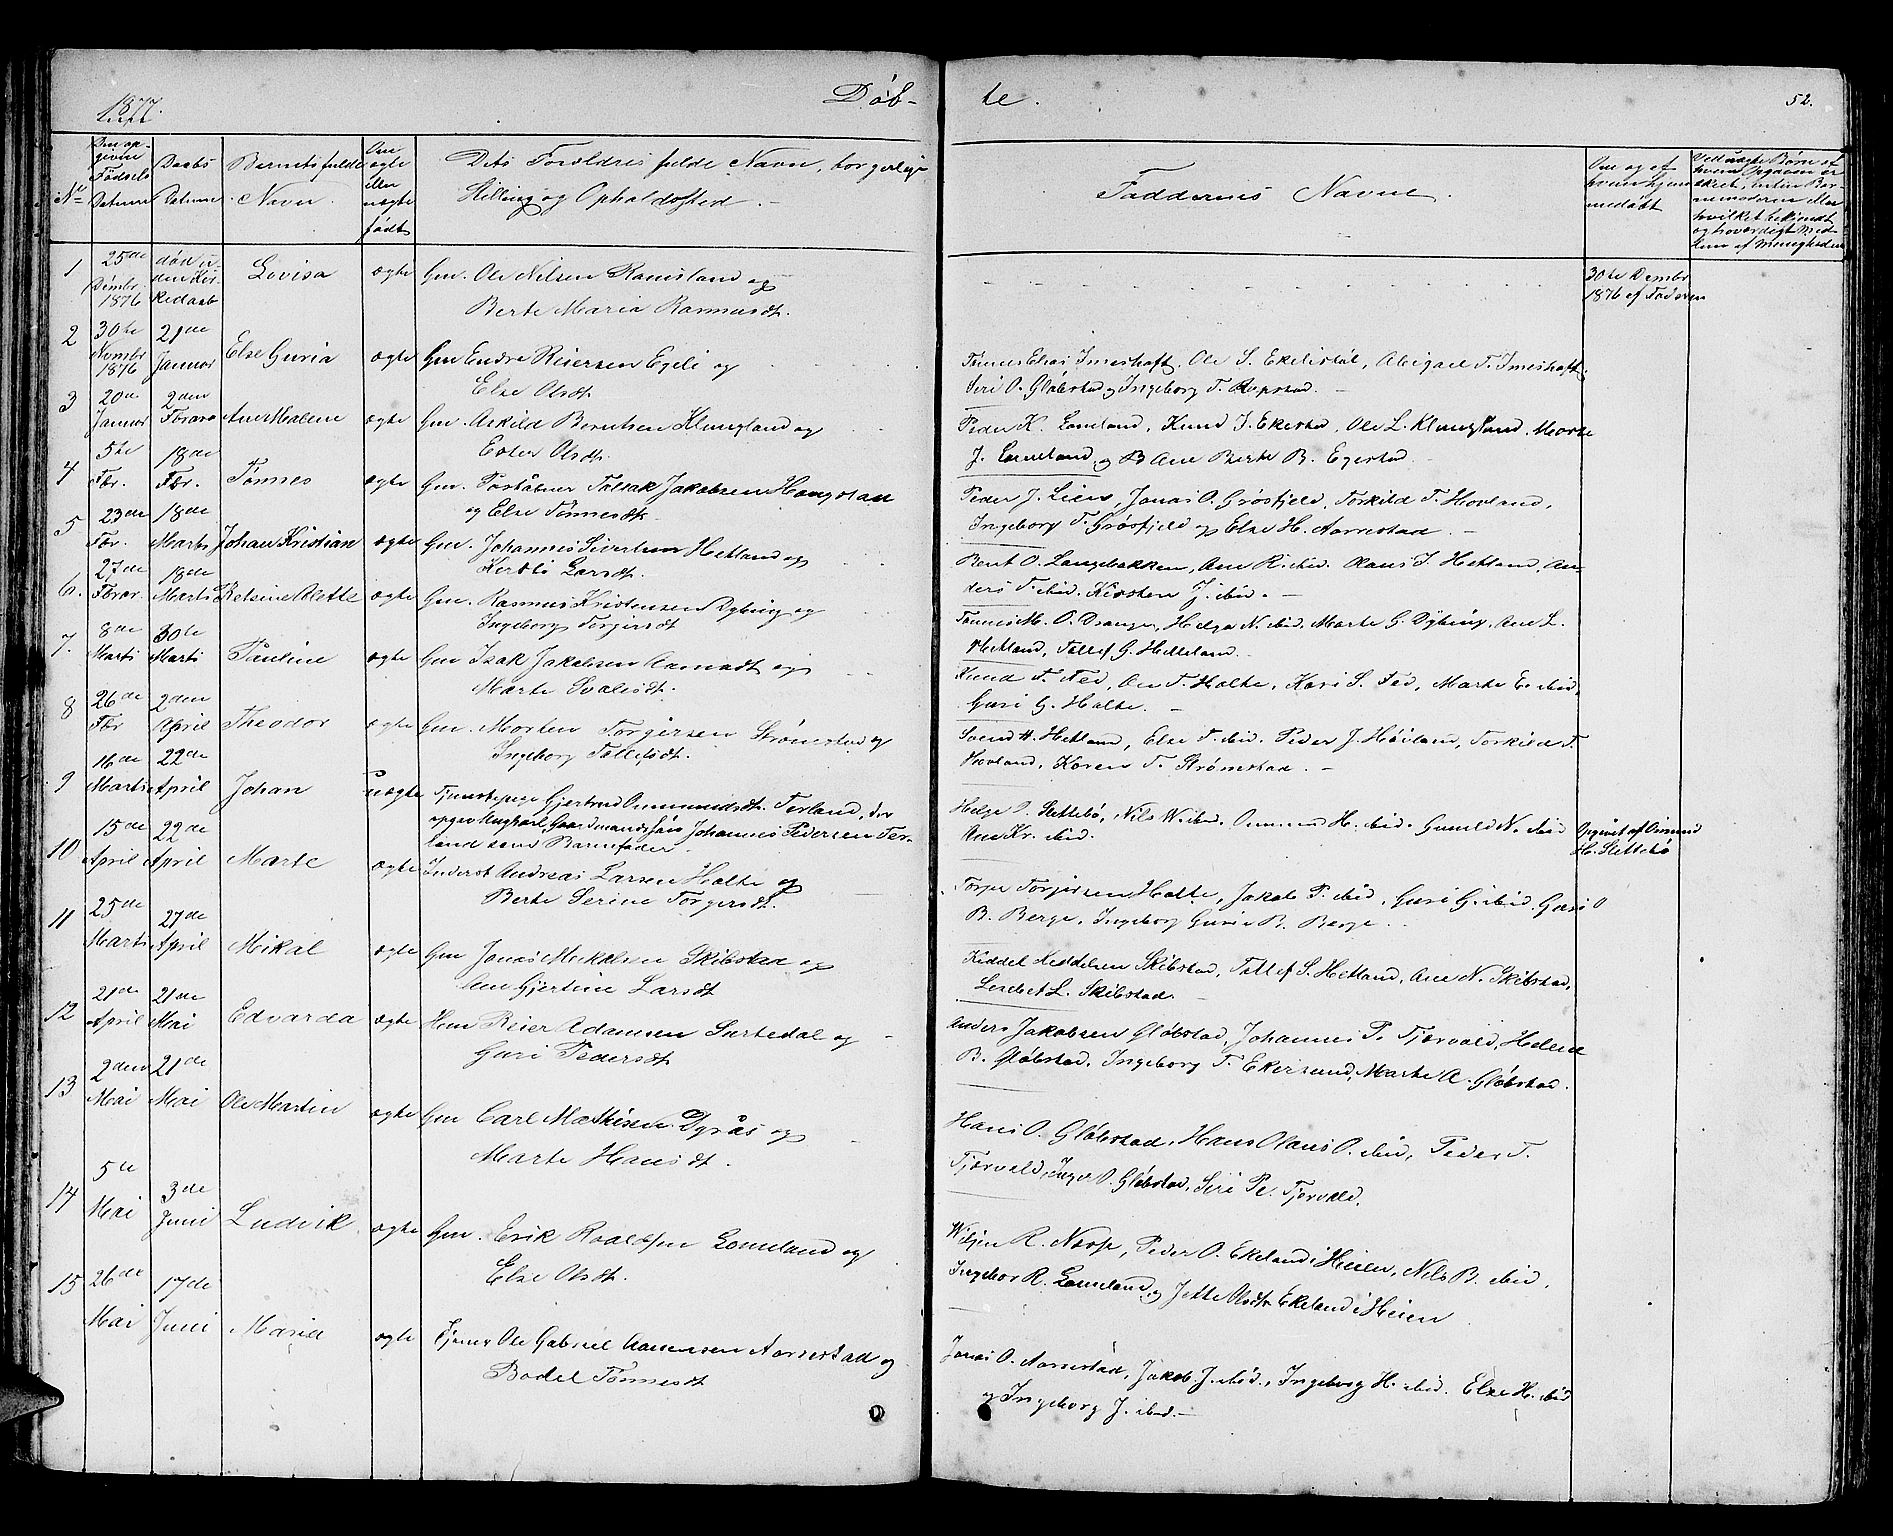 1877.
Døb-
te.
52.
Den op-
given
Fødsels
Datum
Daabs
Datum
Barnets fulde
Navn.
Om
ægte
eller
uægte
født
Dets Forældres fulde Navn, borgerlige
Stilling og Opholdssted.
Faddernes Navne.
Om og af
hvem hjem-
medøbt
No
1
25de
Dembr
1876
død u-
den Kir-
kedaab
Lovisa
ægte
Gm. Ole Nilsen Ramsland og
Berte Maria Rasmusdt.
30te Dembr
1876 af Faderen
2
30te
Novmbr
1876
21de
Januar
Else Guria
ægte
Gm Endre Reiersen Egeli og
Else Olsdt.
Tønnes Elias Imeshaft, Ole S. Ekelistøl, Abigael T. Imeshaft,
Siri O. Gløbstad og Ingeborg T. Repstad.
3
20de
Januar
2den
Februar
Ane Malene
ægte
Gm. Askild Berntsen Klungland og
Ester Olsdt.
Peder K. Lomeland, Knud J. Ekestad, Ole L. Klungland, Marte
J. Lomeland og Ane Berte B. Egestad
4
5te
Febr.
18de
Febr.
Tønnes
ægte
Gm. Postaabner Tolsak Jakobsen Haugstad
og Else Tønnesdt.
Peder J. Lien, Jonas O. Grøsfjeld, Torkild T. Hovland,
Ingeborg T. Grøsfjeld og Else H. Aarrestad.
5
23de
Febr.
18de
Marts
Johan Kristian
ægte
Gm. Johannes Sivertsen Hetland og
Kirsti Larsdt.
Bent O. Langebakken, Ane R. ibid. Olaus T. Hetland, An-
ders T. ibid. Kirsten J. ibid.
6.
27de
Februar.
18de
Marts
Retsine Olette
ægte
Gm. Rasmus Kristensen Dybing og
Ingeborg Torjersdt
Tønnes M. O. Drange, Helga N. ibid, Marte G. Dybing, Ane L.
Hetland, Tollef G. Helleland.
7.
8de
Marts
30te
Marts
Pauline
ægte
Gm Isak Jakobsen Aamodt og
Marte Svalesdt.
Knud T. Fed, Ole T. Holte, Kari S. Fed, Marte E. ibid,
Guri G. Holte.
8
26de
Febr
2den
April
Theodor
ægte
Gm. Morten Torgersen Strømstad og
Ingeborg Tollefsdt.
Svend H. Hetland, Else T. ibid. Peder J. Høiland, Torkild T.
Hovland, Karen T. Strømstad.
9
16de
Marts
22de
April
Johan
uægte
Tjenestepige Gjertrud Ommundsdt. Terland, der
opgav Ungkarl, Gaardmandssøn Johannes Pedersen Ter-
land som Barnefader.
Helge O. Slettebø, Nils W. ibid. Ommund H. ibid. Gunild N. ibid
Ane Kr. ibid.
Opgivet af Ommund
H. Slettebø
10
15de
April
22de
April
Marte
ægte
Inderst Andreas Larsen Holte og
Berte Serine Torgersdt.
Torger Torjersen Holte, Jakob P. ibid, Guri G. ibid. Guri O
B. Berge, Ingeborg Guria B. Berge.
11
25de
Marts
27de
April
Mikal
ægte
Gm Jonas Mikalsen Skibstad og
Ane Gjertine Larsdt
Kiddel Keddelsen Skibstad, Tollef S. Hetland, Ane N. Skibstad,
Lisebet L. Skibstad.
12
21de
April
21de
Mai
Edvarda
ægte
Hm Reier Adamsen Surtedal og
Guri Pedersdt
Anders Jakobsen Gløbstad, Johannes P. Tjørvold, Helene
B. Gløbstad. Ingeborg T. Ekersund, Marte A. Gløbstad.
13
2den
Mai
21de
Mai
Ole Martin
ægte
Gm Carl Mathisen Dyraas og
Marte Hansdt.
Hans O. Gløbstad, Hans Olaus O. ibid, Peder T.
Tjørvold, Inger O. Gløbstad, Siri Pe. Tjørvold.
14
5te
Mai
3de
Juni
Ludvik
ægte
Gm. Erik Roaldsen Lomeland og
Else Olsdt.
Wiljen R. Norp, Peder O. Ekeland i Heien, Nils B. ibid,
Ingebor R. Lomeland og Jette Olsdt Ekeland i Heien
15
26de
Mai
17de
Juni
Maria
ægte
Tjener Ole Gabriel Aanensen Aarrestad og
Bodel Tønnesdt
Jonas O. Aarrestad, Jakob J. ibid., Ingeborg H. ibid. Else H. ibid
og Ingeborg J. ibid.